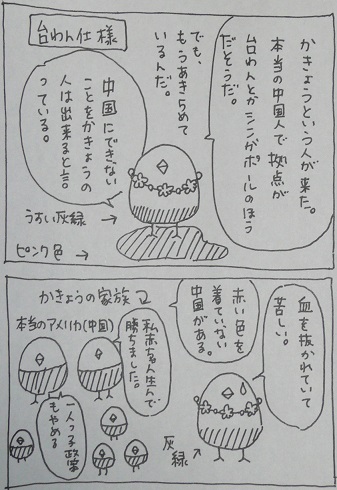 台わん仕様
かきょうという人が来た。
本当の中国人で拠点が
台わんとかシンガポールのほう
だそうだ。
でも、
もうあきらめて
いるんだ。
中国にできない
ことをかきょうの
人は出来ると言
っている。
うすい灰緑→
ピンク色→
血を抜かれていて
苦しい。
赤い色を
着ていない
中国がある。
かきょうの家族2
本当のアメリカ(中国)
私赤ちゃん生んで
勝ちました。
一人っ子政策
もやめる
灰緑